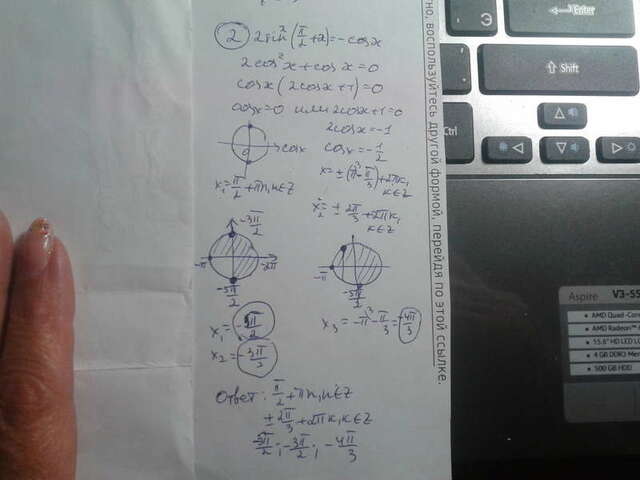 2 2sin²(π/2+x)=-cosx
2cos²x+cosx=0
cosx(2cosx+1)=0
cosx=0 или 2cosx+1=0
2cosx=-1
cosx cosx=-1/2
x=±(π-π/3)+2πk,
k∈Z
x₁=π/2+πn,n∈Z
x₂=±2π/3+2πk,
k∈Z
-3π/2
-π -2π
-5π/2
-π
-5π/2
x₁=-5π/2
x₂=-3π/2
x₃=-π-π/3=-4π/3
Ответ: π/2+πn,n∈Z
±2π/3+2πk,k∈Z
-5π/2; -3π/2; -4π/3
но, воспользуйтесь другой формой, перейдя по этой ссылке.
Э
Enter
Shift
Ctrl
Aspire V3-55
AMD Quad-Core
AMD Radeon
15.6" HD LED LC
4 GB DDR3 Mem
500 GB HDD